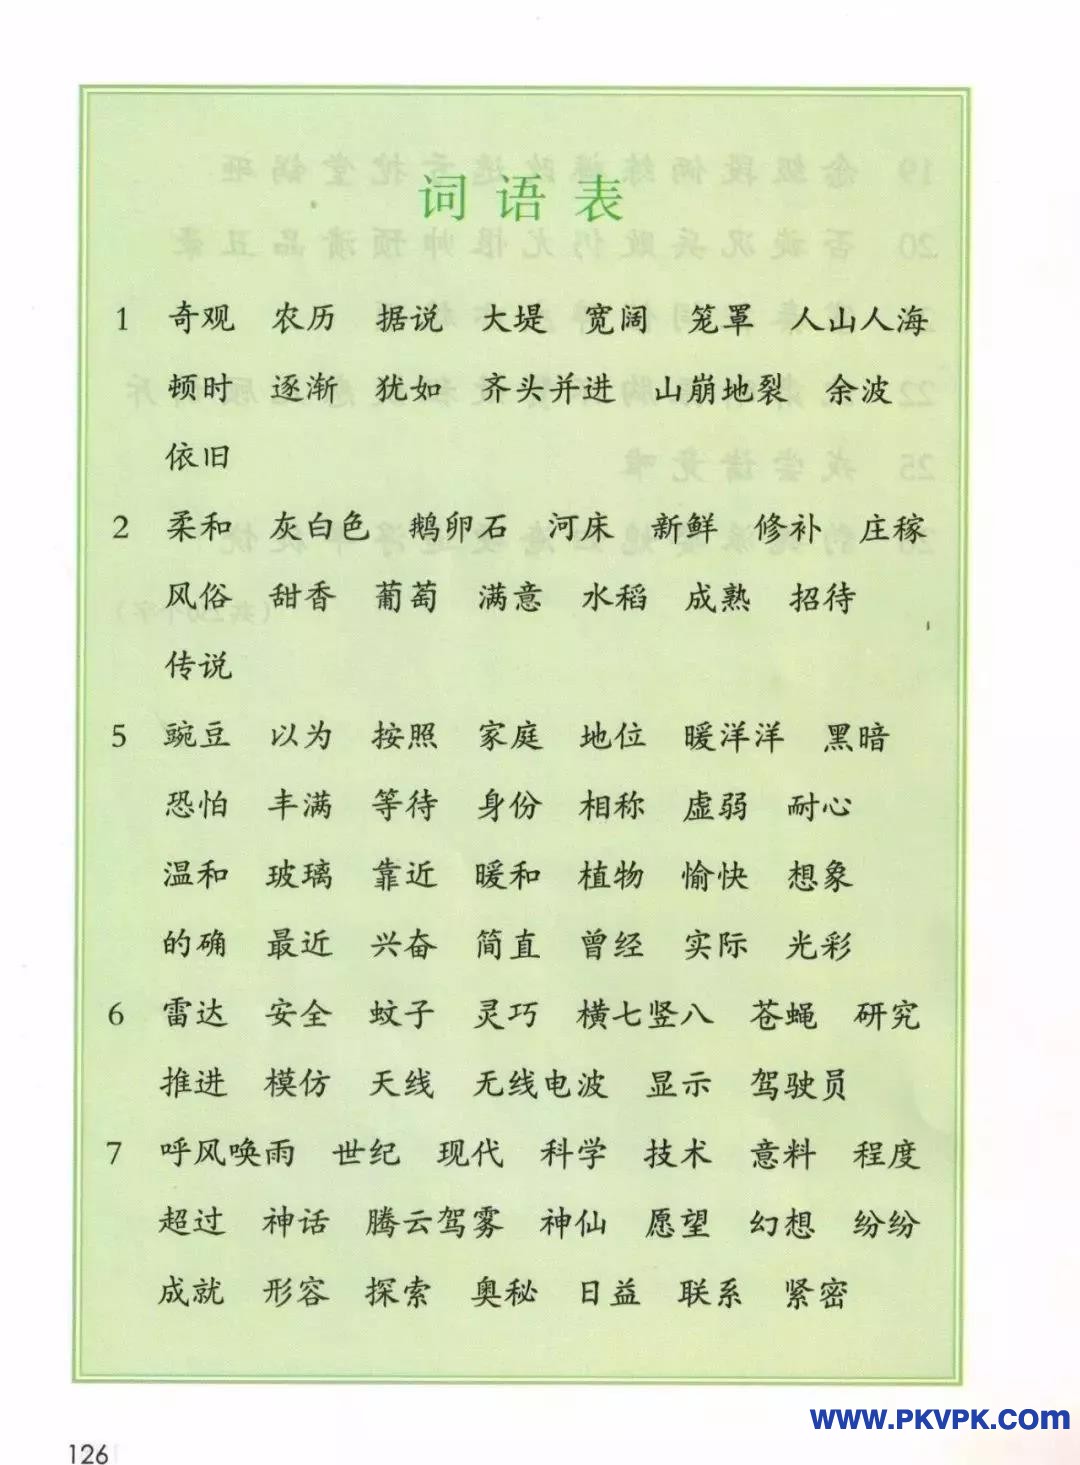 词语表
1 奇观 农历 据说 大堤 宽阔 笼罩 人山人海
顿时 逐渐 犹如 齐头并进 山崩地裂 余波
依旧
2 柔和 灰白色 鹅卵石 河床 新鲜 修补 庄稼
风俗 甜香 葡萄 满意 水稻 成熟 招待
传说
5 豌豆 以为 按照 家庭 地位 暖洋洋 黑暗
恐怕 丰满 等待 身份 相称 虚弱 耐心
温和 玻璃 靠近 暖和 植物 愉快 想象
的确 最近 兴奋 简直 曾经 实际 光彩
6 雷达 安全 蚊子 灵巧 横七竖八 苍蝇 研究
推进 模仿 天线 无线电波 显示 驾驶员
7 呼风唤雨 世纪 现代 科学 技术 意料 程度
超过 神话 腾云驾雾 神仙 愿望 幻想 纷纷
成就 形容 探索 奥秘 日益 联系 紧密
www.PKVPK.com
126